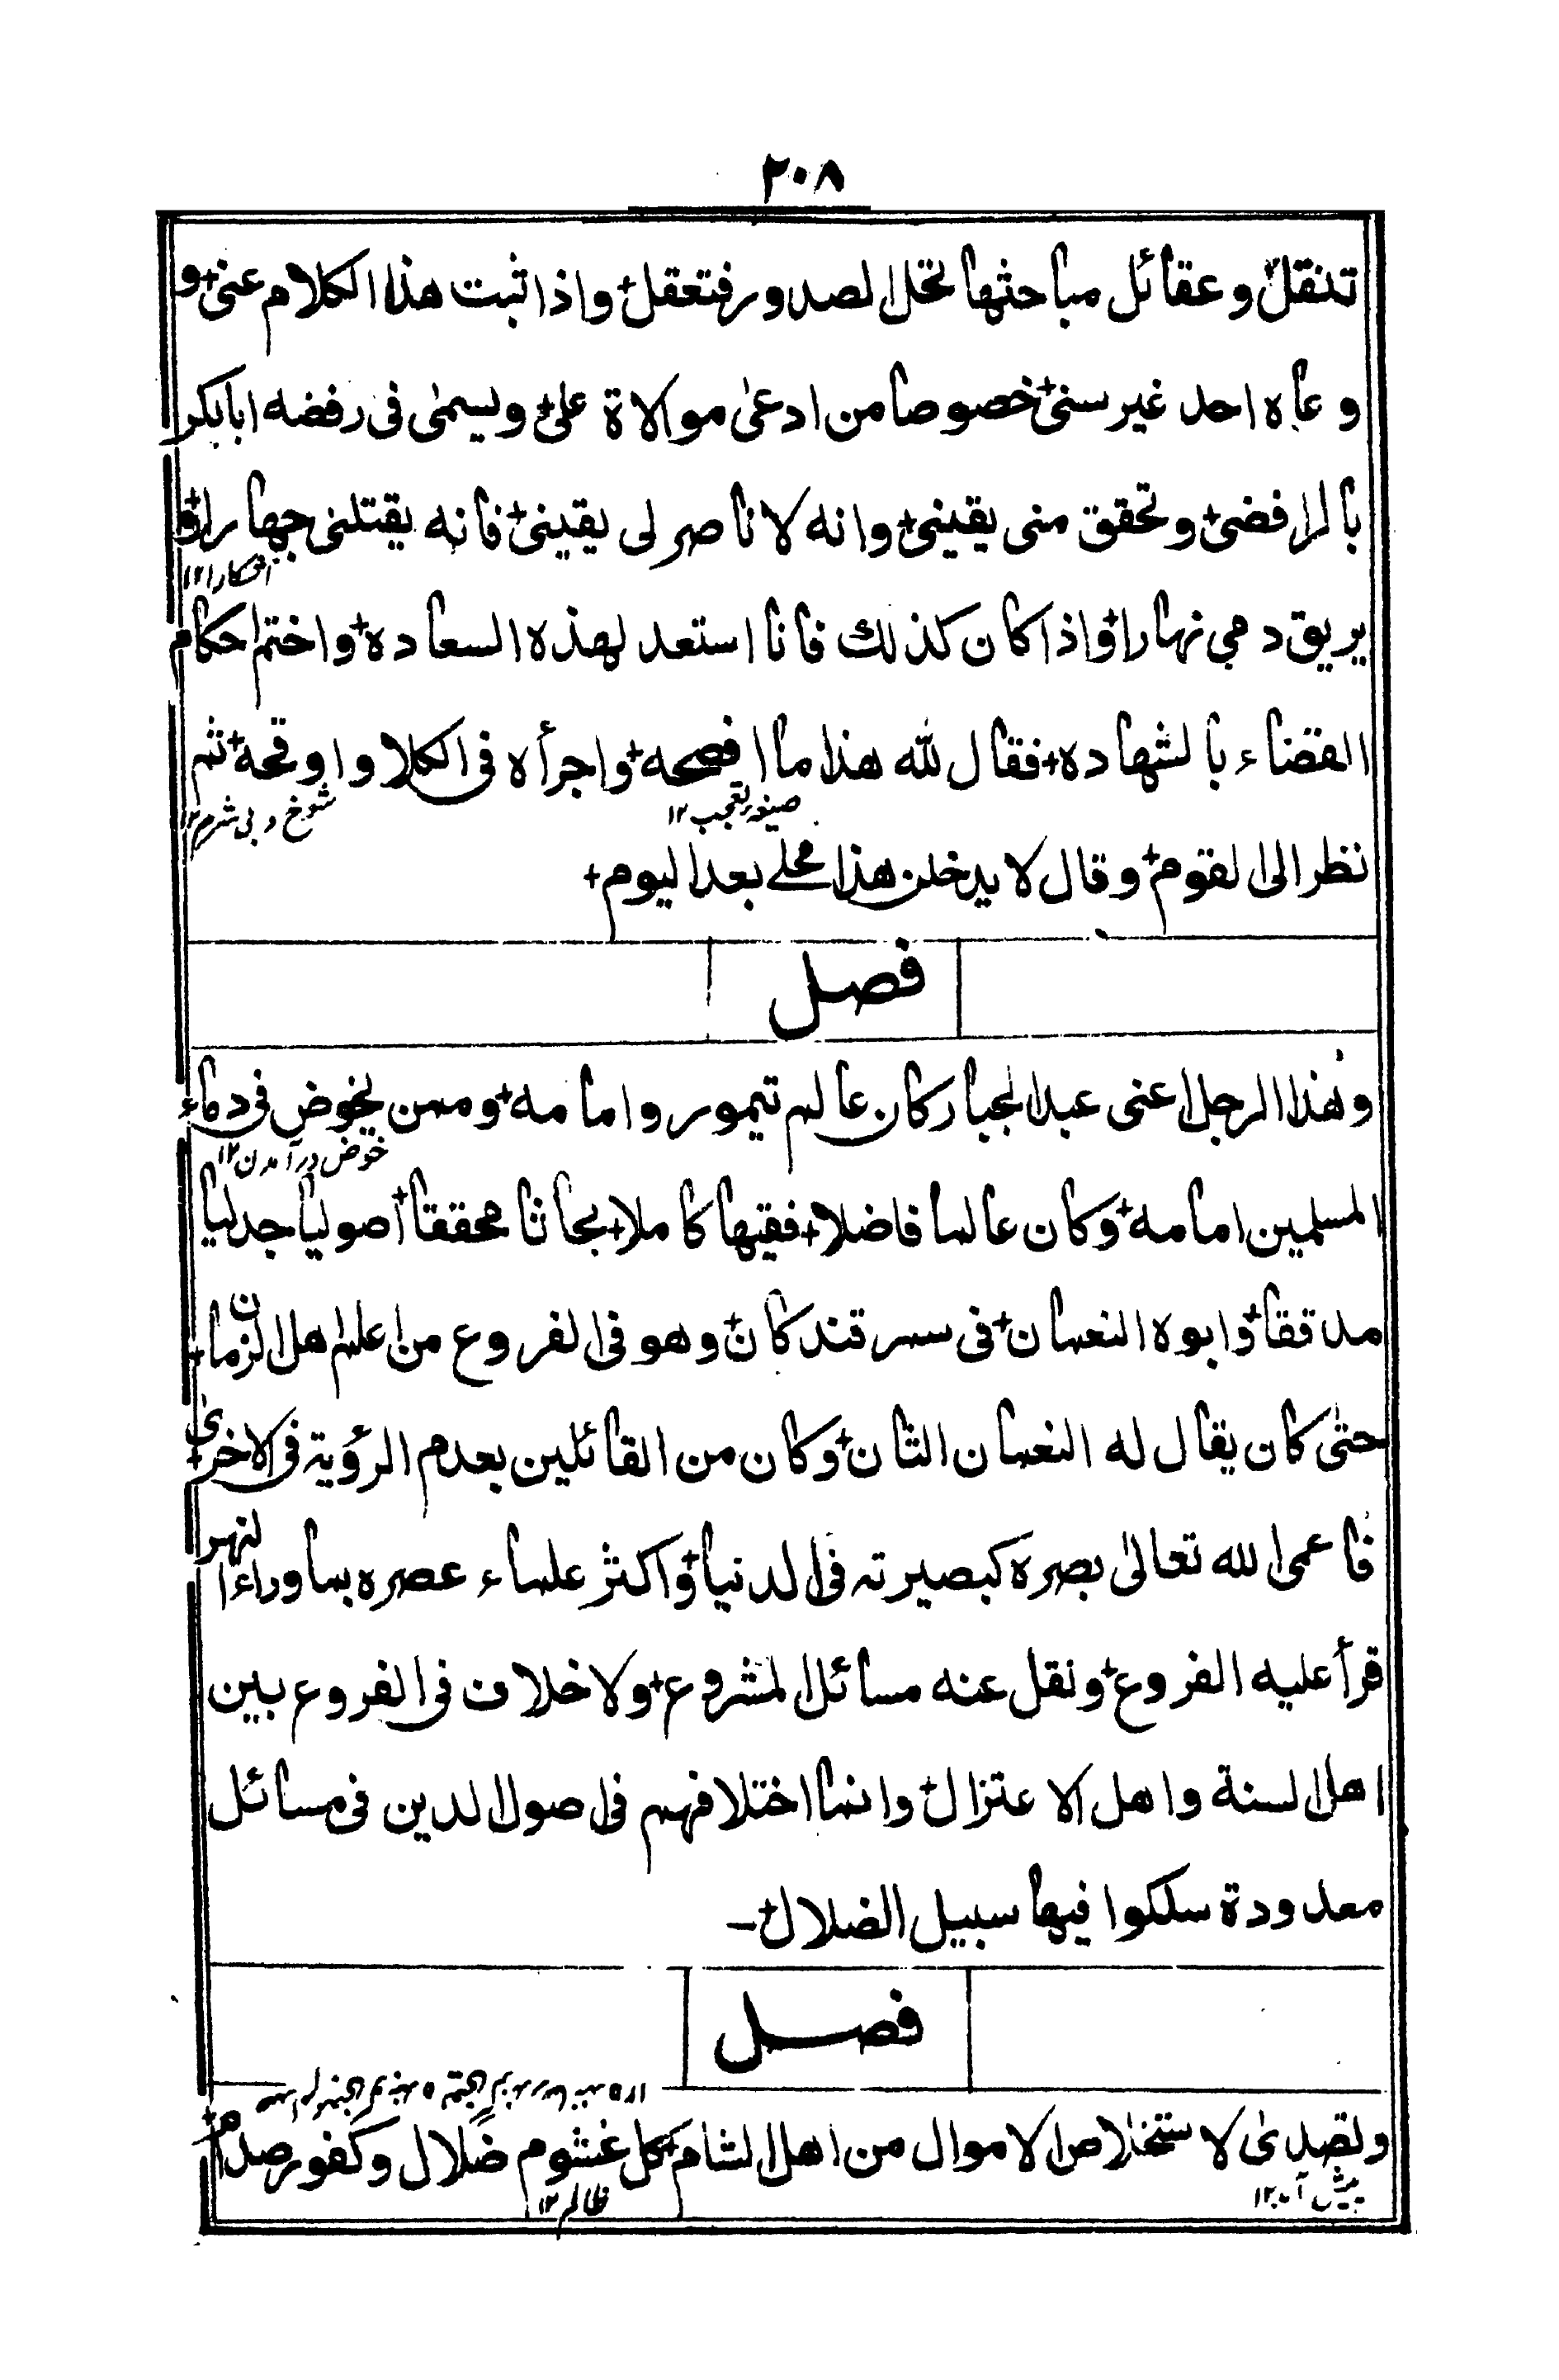 ٢٠٨
تنقل وعقائل مباحثها تحل الصدور فتعقل+ واذا ثبت هذا الكلام عنى+ و
وعاه احد غير سنى+ خصوصا من ادعى موالاة على+ ويسمى فى رفضه ابابكر
بالرافضى+ وتحقق منى يقينى+ وانه لا ناصر لى يقينى+ فانه يقتلنى جهارا+ و
يريق دمى نهارا+ واذا كان كذلك فانا استعد لهذه السعاده+ واختم احكام
القضاء بالشهاده+ فقال لله هذا ما افصحه+ واجرأه فى الكلا واوقحه+ ثم
صيغہ تعجب ١٢
شوخ و بى شرم ١٢
نظر الى القوم+ وقال لا يدخلن هذا محلے بعد اليوم+
فصل
وهذا الرجل اعنى عبد الجبار كان عالم تيمور وامامه+ وممن يخوض فى دماء
خوض در آمدن ١٢
المسلمين امامه+ وكان عالما فاضلا+ فقيها كاملا+ بحاثا محققا+ اصوليا جدليا
مدققا+ وابوه النعمان+ فى سمرقند كان+ وهو فى الفروع من اعلم اهل الزمان+
حتى كان يقال له النعمان الثان+ وكان من القائلين بعدم الرؤية فى الاخرى+
فاعمى الله تعالى بصره كبصيرته فى الدنيا+ واكثر علماء عصره بماوراء النهر
قرأ عليه الفروع+ ونقل عنه مسائل المشروع+ ولا خلاف فى الفروع بين
اهل السنة واهل الاعتزال+ وانما اختلافهم فى اصول الدين فى مسائل
معدودة سلكوا فيها سبيل الضلال+ –
فصل
وتصدى لاستخلاص الاموال من اهل الشام+ كل غشوم ضلال وكفور صدام+
پيش آمد ١٢
ظالم ١٢